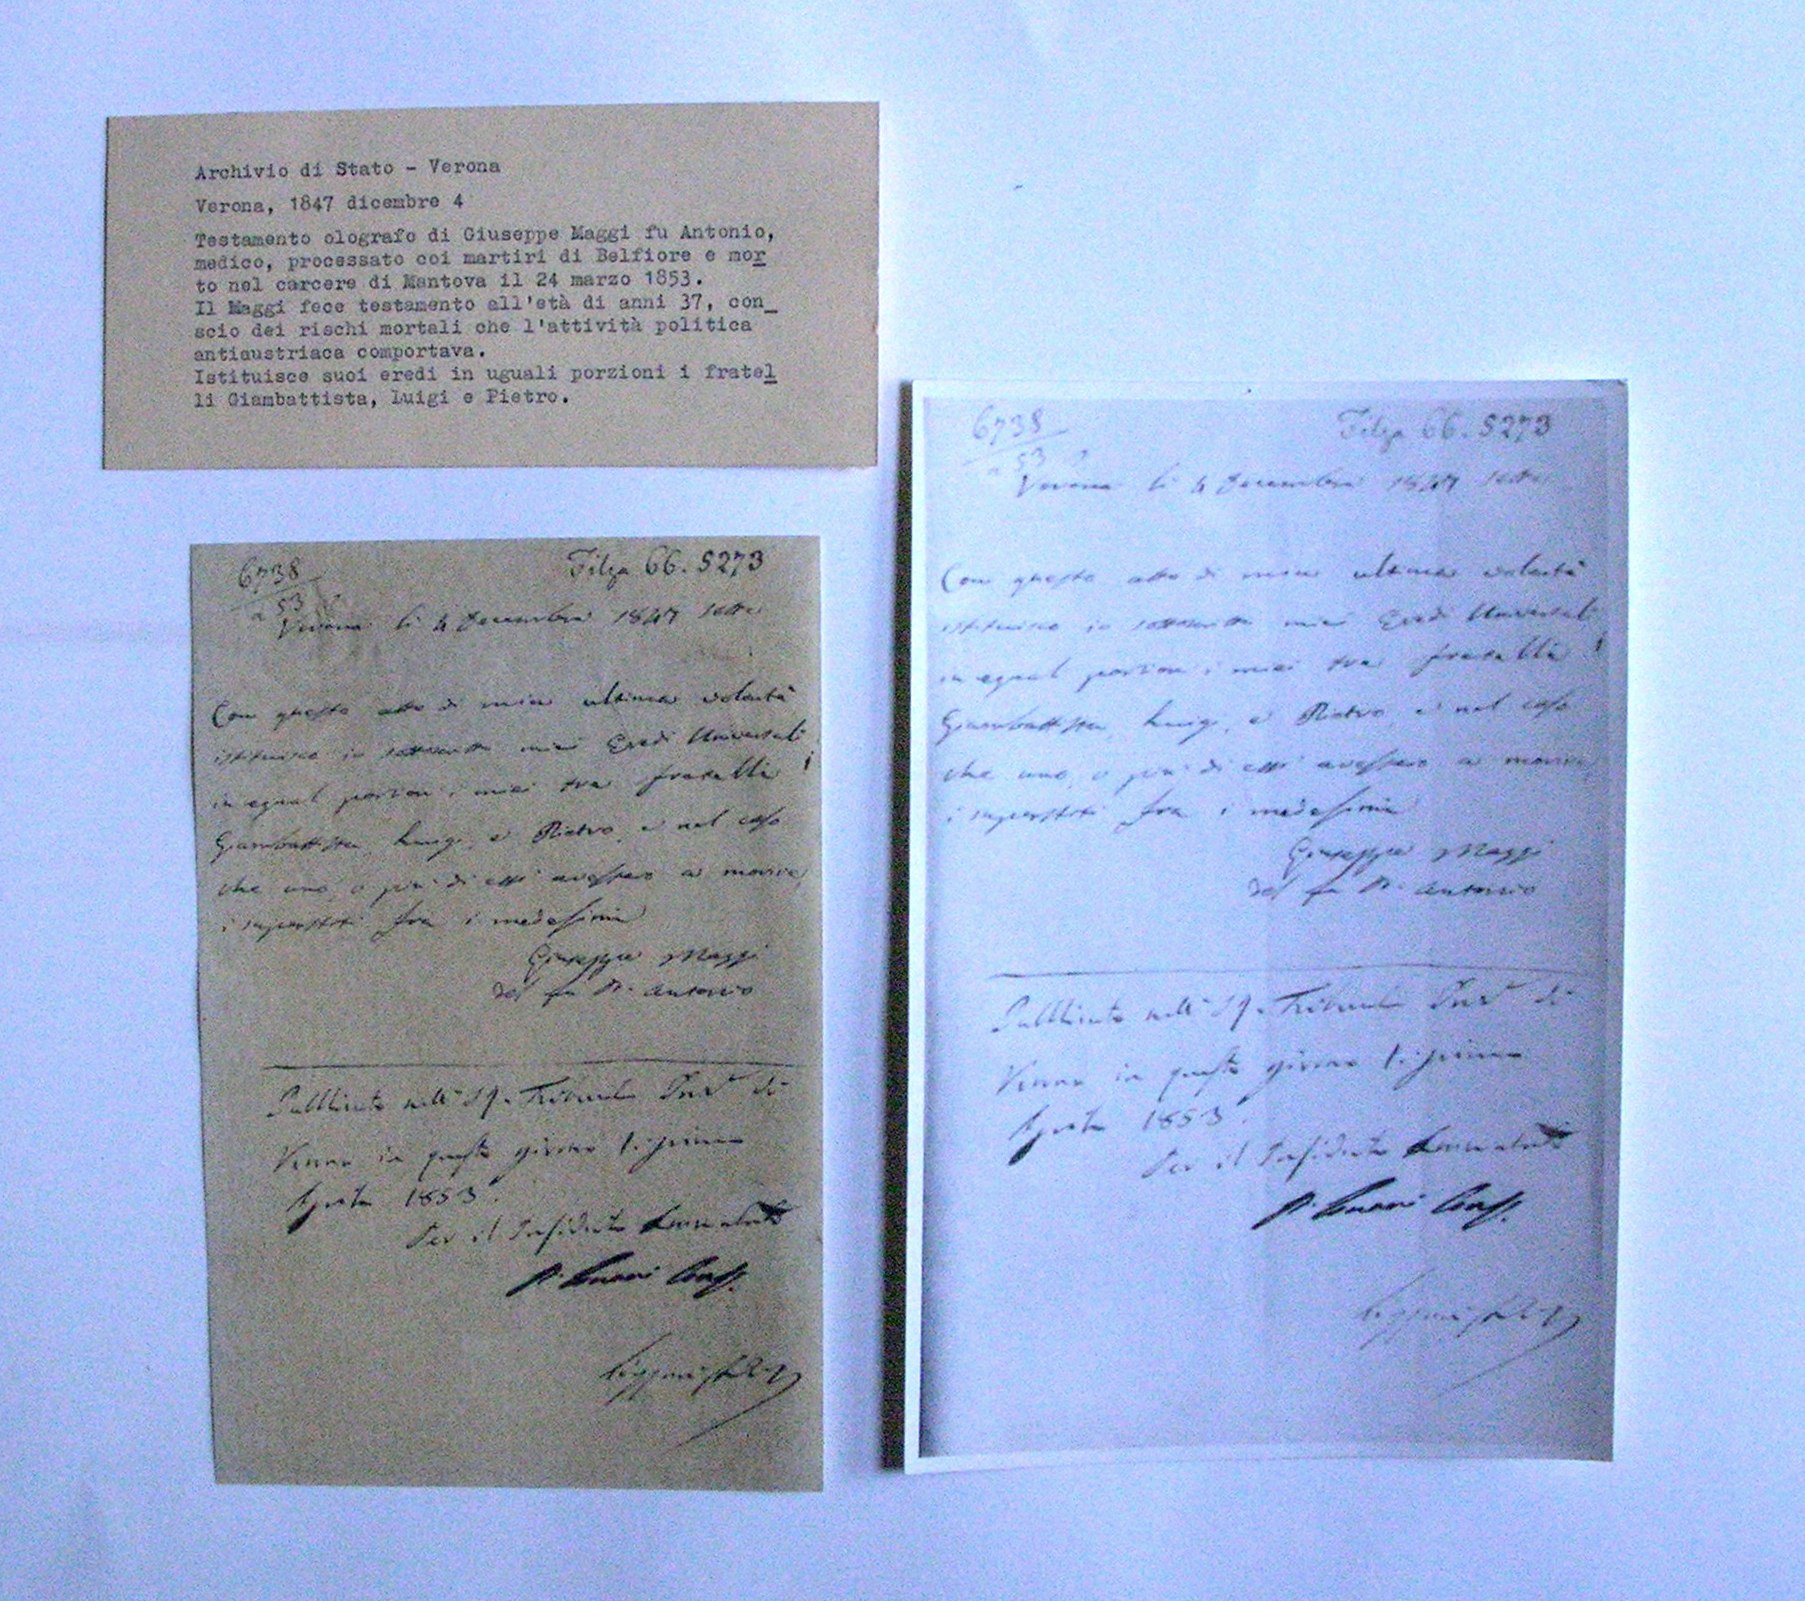 Archivio di Stato - Verona
Verona, 1847 dicembre 4
Testamento olografo di Giuseppe Maggi fu Antonio,
medico, processato coi martiri di Belfiore e mor
to nel carcere di Mantova il 24 marzo 1853.
Il Maggi fece testamento all'età di anni 37, con_
scio dei rischi mortali che l'attività politica
antiaustriaca comportava.
Istituisce suoi eredi in uguali porzioni i fratel
li Giambattista, Luigi e Pietro.
6738 Filza 66. 5273
a 53
Verona li 4 Decembre 1847 sette
Con questo atto di mia ultima volontà
istituisco io sottoscritto miei Eredi Universali
in egual porzion i miei tre fratelli
Giambattista, Luigi, e Pietro, e nel caso
che uno, o più di essi avessero a morire,
i superstiti fra i medesimi
Giuseppe Maggi
del fu Antonio
Pubblicato nell' Tribunale di
Verona in questo giorno primo
Agosto 1853.
Per il Presidente
6738 Filza 66. 5273
a 53
Verona li 4 Decembre 1847 sette
Con questo atto di mia ultima volontà
istituisco io sottoscritto miei Eredi Universali
in egual porzion i miei tre fratelli
Giambattista, Luigi, e Pietro, e nel caso
che uno, o più di essi avessero a morire,
i superstiti fra i medesimi
Giuseppe Maggi
del fu Antonio
Pubblicato nell' Tribunale di
Verona in questo giorno primo
Agosto 1853.
Per il Presidente